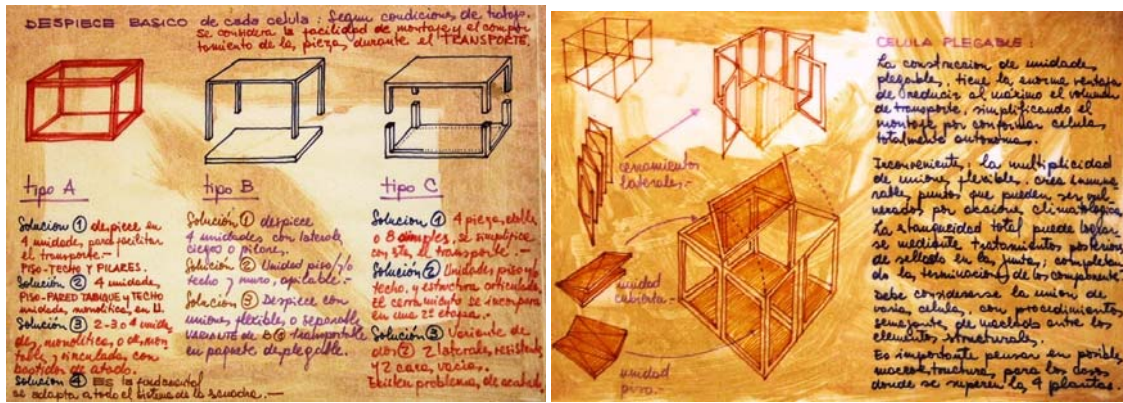 DESPIECE BASICO de cada celula: Segun condiciones de trabajo.
Se considera la facilidad de montaje y el compor
tamiento de las piezas durante el TRANSPORTE.
tipo A
Solucion 1 despiece en
4 unidades, para facilitar
el transporte.-
PISO-TECHO Y PILARES.
Solución 2 4 unidades,
PISO-PARED TABIQUE y TECHO
unidades monoliticas, en U.
Solución 3 2-3 o 4 unida
des, monoliticas, o desmon
tables, vinculadas con
bastidos de atado.
Solución 4 Es la fundamental
se adapta a todo el sistema de la
tipo B
Solución 1 despiece
4 unidades con laterales
ciegos o pilares.
Solución 2 Unidad piso/y/o
techo y muro, apilable.-
Solución 3 Despiece con
uniones flexibles o separables
VARIANTE de B① Transportable
en paquete desplegable.
tipo C
Solución 1 4 piezas dobles
o 8 simples, se simplifica
con ésta el transporte.-
Solución 2 Unidades piso y/o
techo, y estructura articulada.
El cerramiento se incorpora
en una 2ª etapa.-
Solución 3 Variante de
2 laterales resistentes
y 2 caras vacias.-
Existen problemas, de acabado.
cerramientos
laterales.-
unidad
cubierta.-
unidad
piso.-
CELULA PLEGABLE:
La construccion de unidades
plegables, tiene la enorme ventaja
de reducir al máximo el volumen
de transporte, simplificando el
montaje por conformar celulas
totalmente autonomas.
Inconveniente: la multiplicidad
de uniones flexibles, crea innume
rables puntos que pueden ser vul-
nerados por acción climatologica
La estanqueidad total puede lograr
se mediante tratamientos posteriores
de sellado en las juntas, completan-
do la terminacion de los componentes
Debe considerarse la union de
varias celulas, con procedimientos
semejantes de maclado entre los
elementos structurales.
Es importante pensar en posibles
macroestructuras, para los casos
donde se superen las 4 plantas.